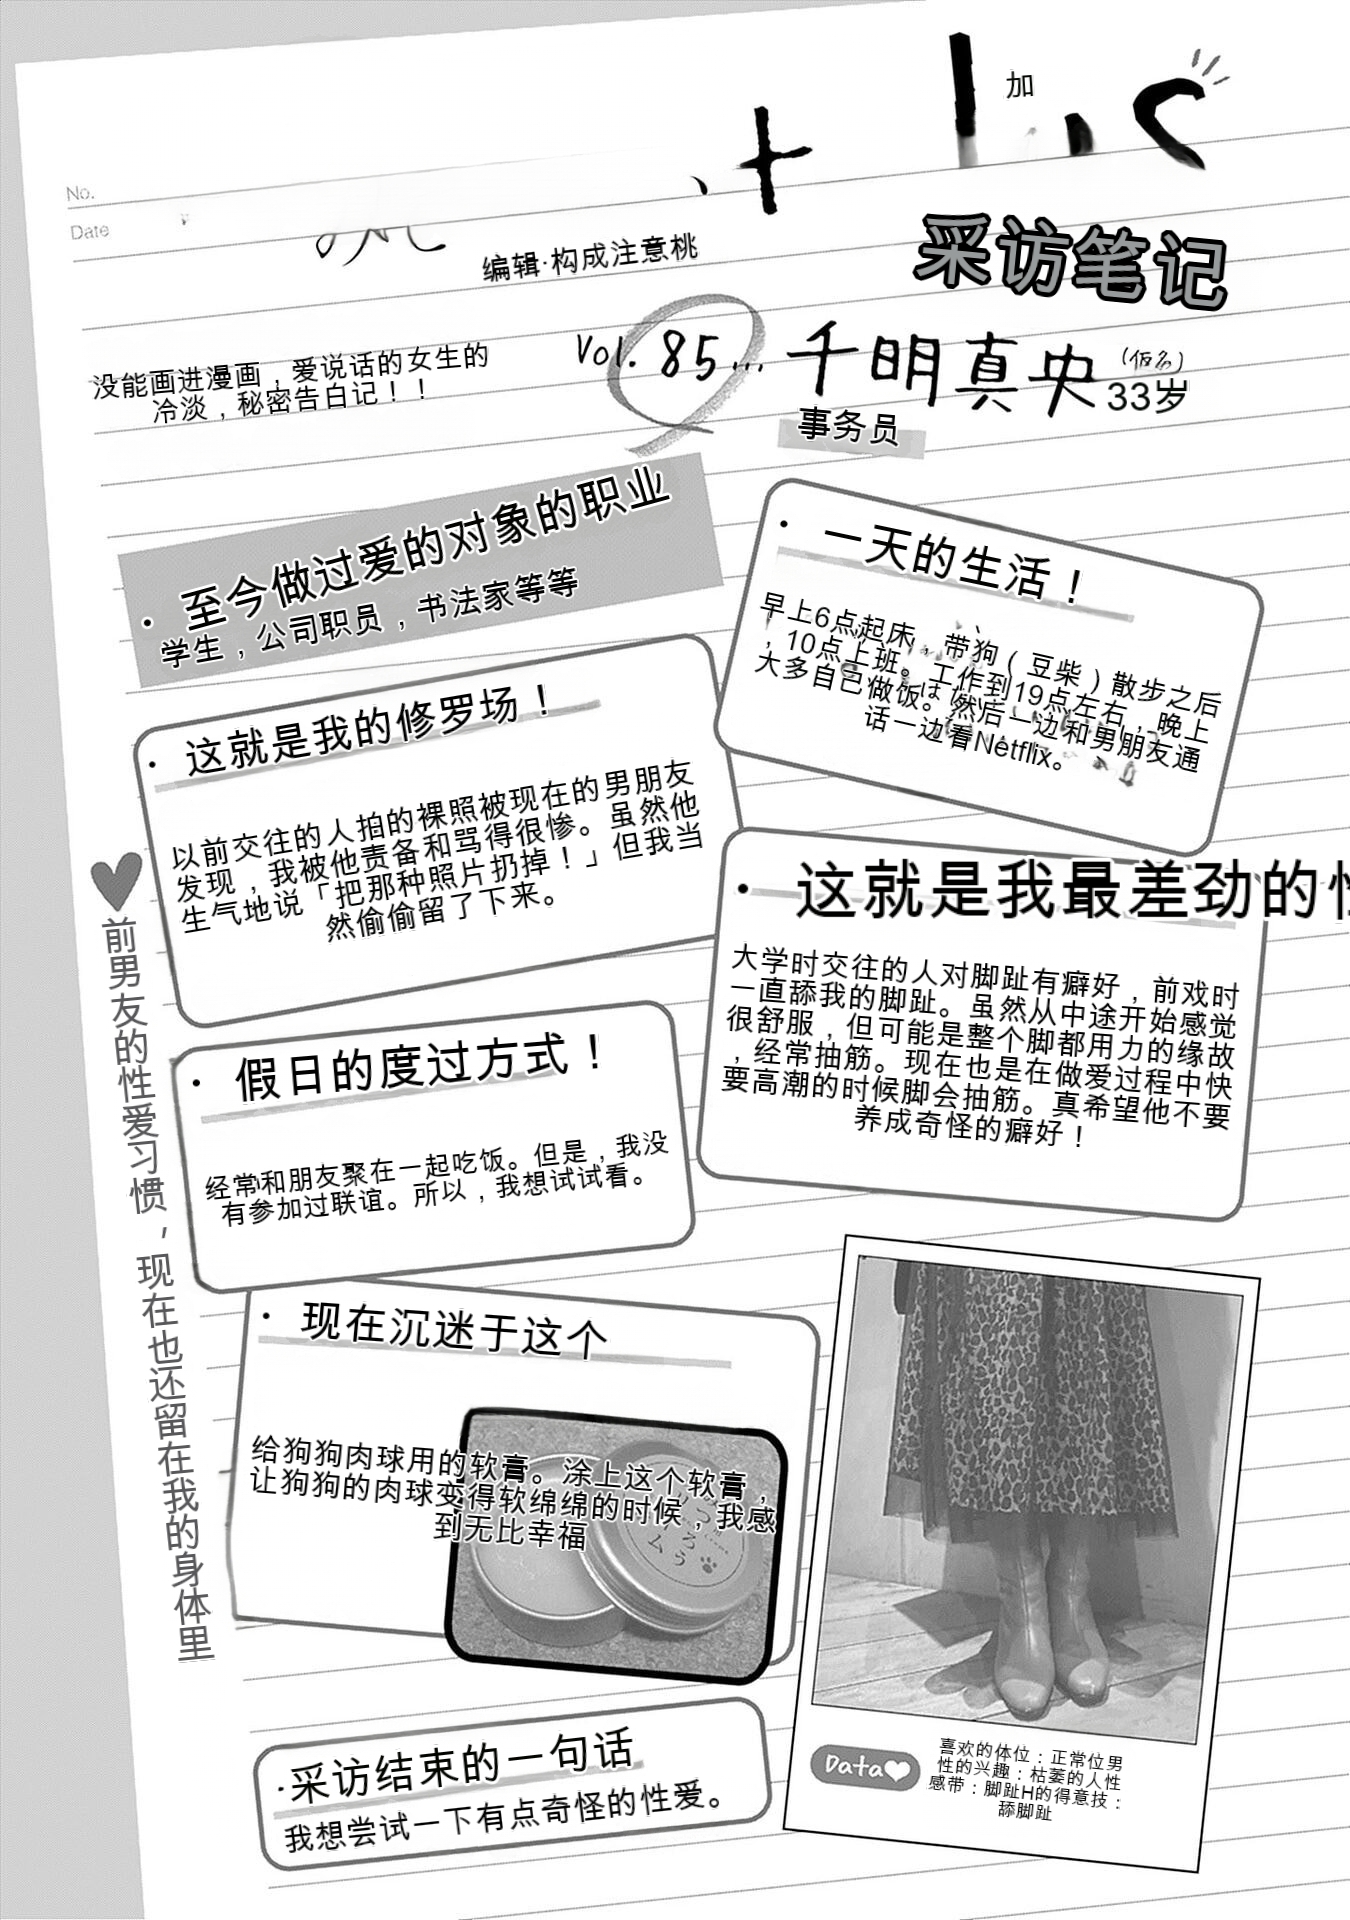 加
No.
Date
采访笔记
编辑·构成注意桃
Vol. 85... 千明真央
(仮名)
33岁
事务员
没能画进漫画，爱说话的女生的
冷淡，秘密告白记！！
· 至今做过爱的对象的职业
学生，公司职员，书法家等等
· 一天的生活！
早上6点起床，带狗（豆柴）散步之后
，10点上班。工作到19点左右，晚上
大多自己做饭。然后一边和男朋友通
话一边看Netflix。
· 这就是我的修罗场！
以前交往的人拍的裸照被现在的男朋友
发现，我被他责备和骂得很惨。虽然他
生气地说「把那种照片扔掉！」但我当
然偷偷留了下来。
· 这就是我最差劲的性
大学时交往的人对脚趾有癖好，前戏时
一直舔我的脚趾。虽然从中途开始感觉
很舒服，但可能是整个脚都用力的缘故
，经常抽筋。现在也是在做爱过程中快
要高潮的时候脚会抽筋。真希望他不要
养成奇怪的癖好！
前男友的性爱习惯，现在也还留在我的身体里
· 假日的度过方式！
经常和朋友聚在一起吃饭。但是，我没
有参加过联谊。所以，我想试试看。
· 现在沉迷于这个
给狗狗肉球用的软膏。涂上这个软膏，
让狗狗的肉球变得软绵绵的时候，我感
到无比幸福
·采访结束的一句话
我想尝试一下有点奇怪的性爱。
Data
喜欢的体位：正常位男
性的兴趣：枯萎的人性
感带：脚趾H的得意技：
舔脚趾